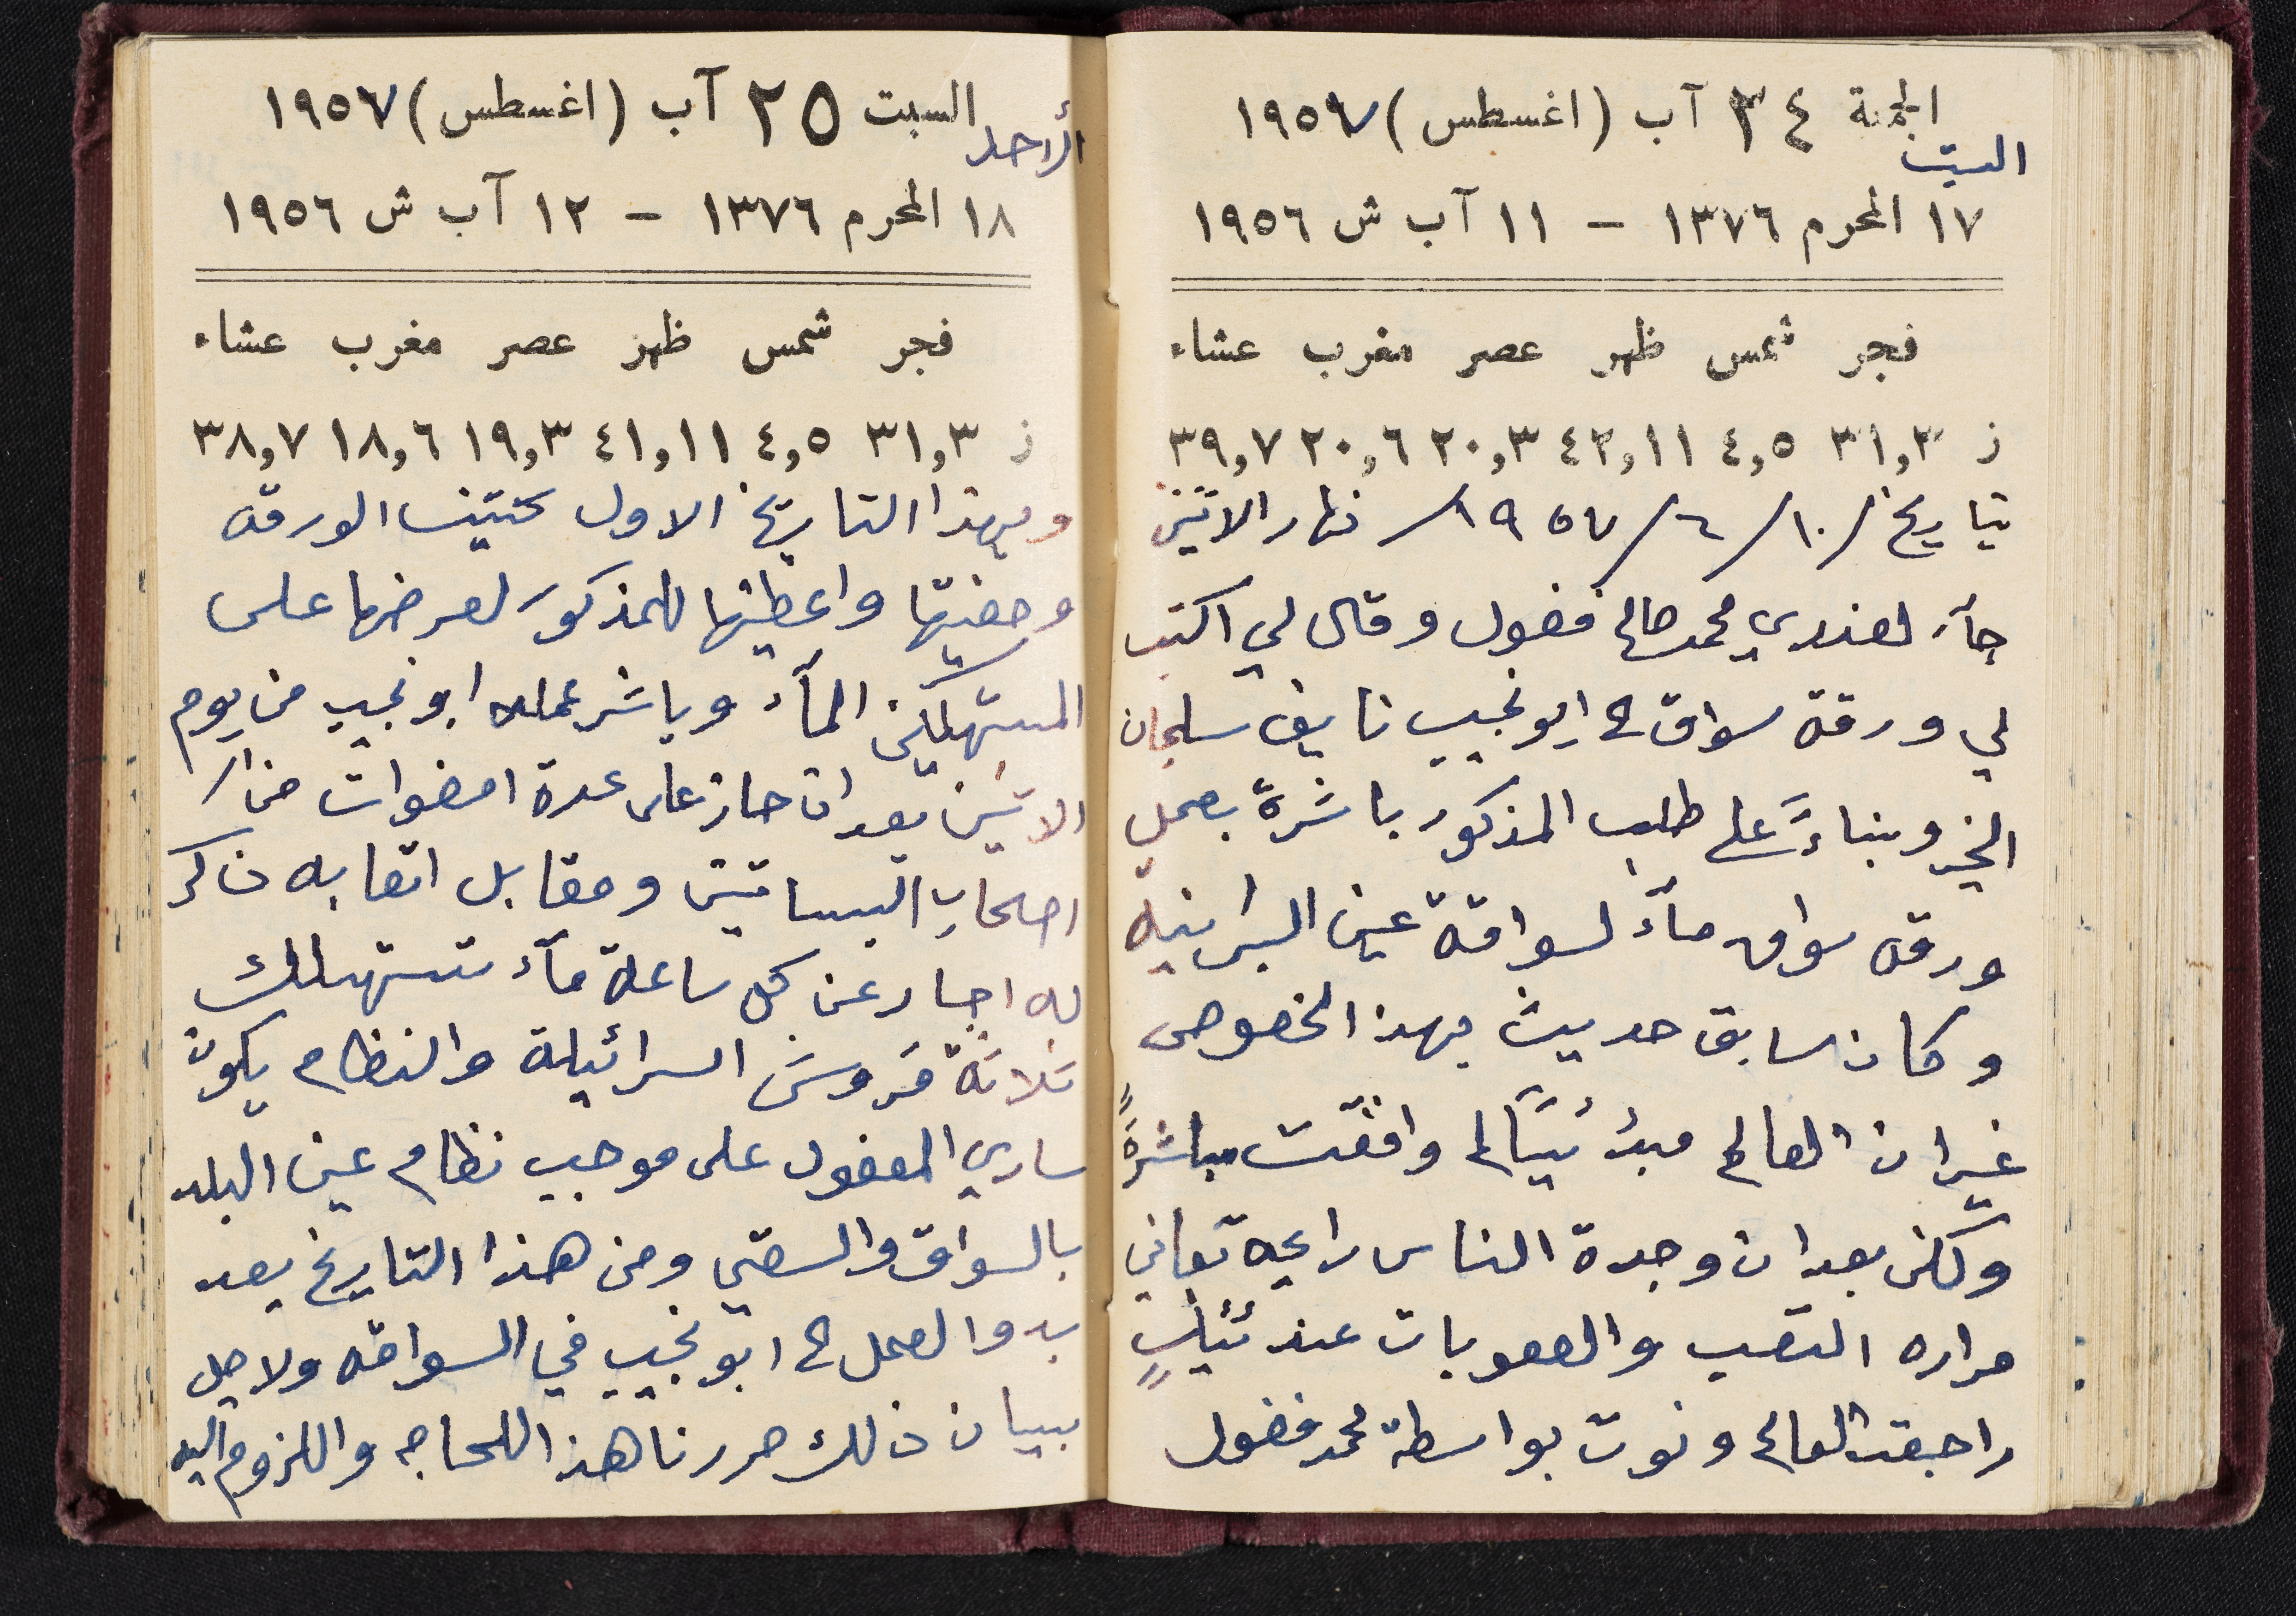 الجمعة ٢٤ آب (اغسطس) ١٩٥٧
السبت
١٧ المحرم ١٣٧٦ – ١١ آب ش ١٩٥٦
فجر شمس ظهر عصر مغرب عشاء
ز ٣١,٣ ٤,٥ ٤٢,١١ ٢٠,٣ ٢٠,٦ ٣٩,٧
بتاريخ ١٠/٦/١٩٥٧/ نهار الاثنين
جآء لعندي محمد صالح فضول وقال لي اكتب
لي ورقة سواق لـ ابو نجيب نايف سلمان
الخ وبناءً على طلب المذكور باشرة بعمل
ورقه سواق مآء لسواقة عين البرانيه
وكان سابق حديث بهذا الخصوص
غير ان العالم مبدئيًا لم وافقت مباشرةً
ولكن بعد ان وجدة الناس رايحه تعاني
مراره التعب والصعوبات عندئذٍ
راجعت العالم ونوت بواسطة محمد فضول
السبت ٢٥ آب (اغسطس) ١٩٥٧
الأحد
١٨ المحرم ١٣٧٦ – ١٢ آب ش ١٩٥٦
فجر شمس ظهر عصر مغرب عشاء
ز ٣١,٣ ٤,٥ ٤١,١١ ١٩,٣ ١٨,٦ ٣٨,٧
وبهذا التاريخ الاول كتبنا الورقه
ومضيتها واعطيتها للمذكور لعرضها على
المستهلكين المآء وباشر عمله ابو نجيب من يوم
الاثنين بعد ان حاز على عدة امضوات من
اصحاب البساتين ومقابل اتعابه ذاكر
له اجار عن كل ساعة مآء تستهلك
ثلاثة قروش اسرائيلة والنظام يكون
ساري المعفول على موجب نظام عين البلد
بالسواق والسقي ومن هذا التاريخ بعد
بدو العمل لـ ابو نجيب في السواقه ولاجل
بيان ذلك حررنا هذا للحاجه واللزوم اليه